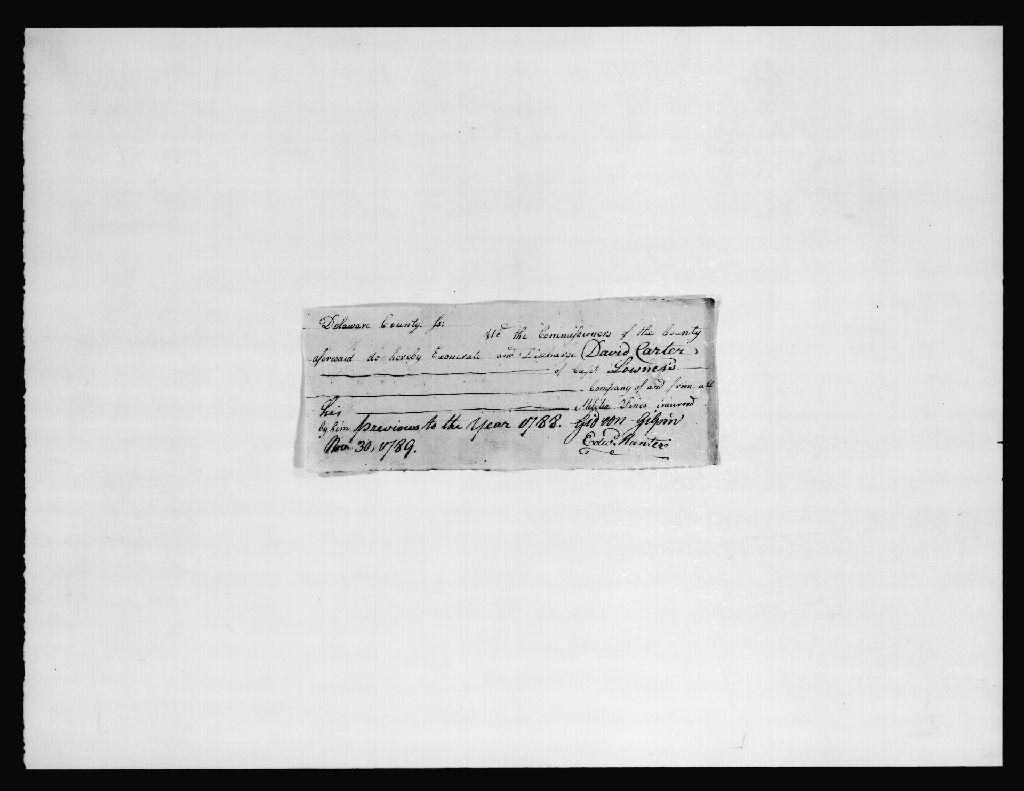 Delaware County ss: We the Commissioners of the County
aforesaid do hereby Exonerate and Discharge David Carter
of Capt Lownes's
Company of and from all
his Militia Fines incurred
by him previous to the Year 1788. Gideon Gilpin
Nov. 30, 1789. Edwd. Hunter